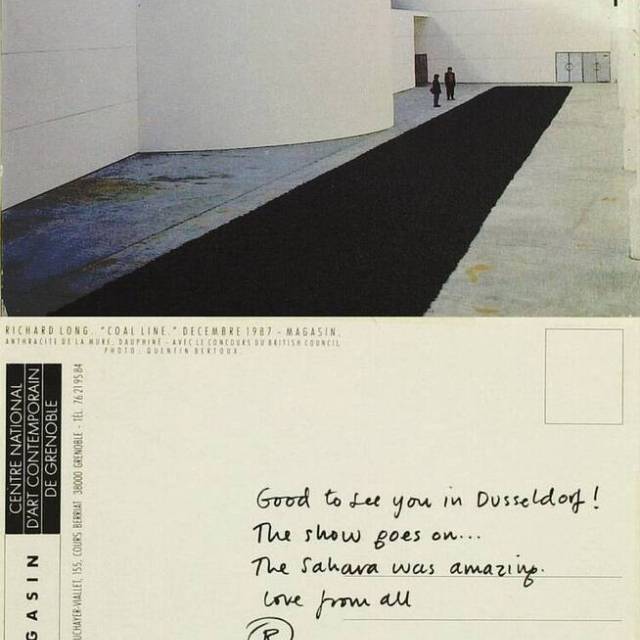 RICHARD LONG. "COAL LINE." DECEMBRE 1987 - MAGASIN.
ANTHRACITE DE LA MURE, DAUPHINÉ - AVEC LE CONCOURS DU BRITISH COUNCIL
PHOTO: QUENTIN BERTOUX
CENTRE NATIONAL
D'ART CONTEMPORAIN
DE GRENOBLE
155, COURS BERRIAT 38000 GRENOBLE - TÉL. 76 21 95 84
GASIN
Good to see you in Dusseldorf!
The show goes on...
The Sahara was amazing.
love from all
R